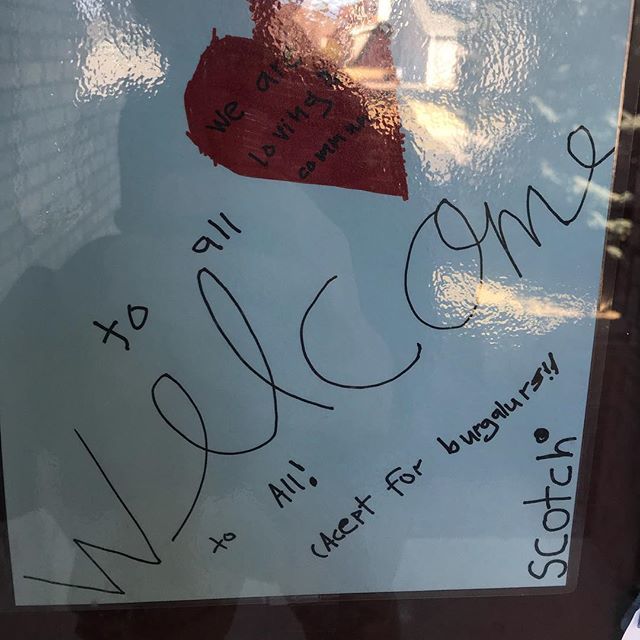 We are
loving &
to all
Welcome
to All!
(Acept for burgalurs!!
scotch